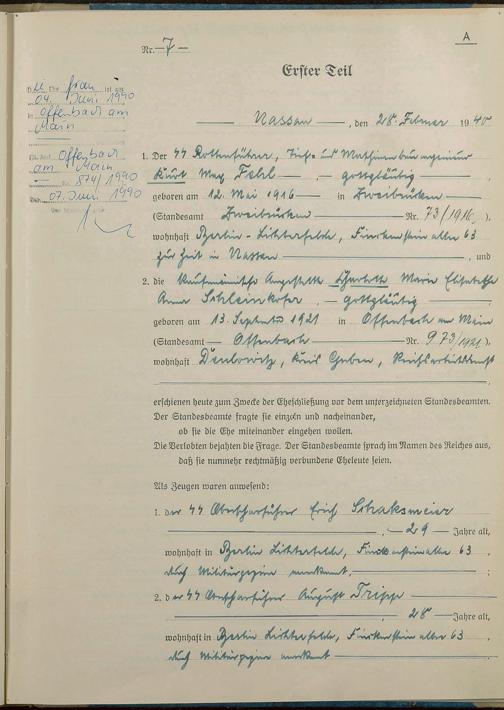 A
Nr. 7
Erster Teil
Die Frau ist am
04. Juni 1990
in Offenbach am
Main
Offenbach
am Main
874/1990
07. Juni 1990
Nassau, den 28. Februar 1940
1. Der SS Rottenführer, Tief- und Maschinenbauingenieur
Kurt Max Fehl — gottgläubig
geboren am 12. Mai 1916 in Zweibrücken
(Standesamt Zweibrücken Nr. 73/1916),
wohnhaft Berlin-Lichterfelde, Finckensteinallee 63
zur Zeit in Nassau, und
2. die kaufmännische Angestellte Marie Elisabeth
Anna — gottgläubig
geboren am 13. September 1921 in Offenbach am Main
(Standesamt Offenbach Nr. 973/1921),
wohnhaft Kreis Guben, Reichsarbeitsdienst
erschienen heute zum Zwecke der Eheschließung vor dem unterzeichneten Standesbeamten.
Der Standesbeamte fragte sie einzeln und nacheinander,
ob sie die Ehe miteinander eingehen wollen.
Die Verlobten bejahten die Frage. Der Standesbeamte sprach im Namen des Reiches aus,
daß sie nunmehr rechtmäßig verbundene Eheleute seien.
Als Zeugen waren anwesend:
1. der SS Oberscharführer Erich Schaksmeier
29 Jahre alt,
wohnhaft in Berlin Lichterfelde, Finckensteinallee 63
durch Militärpapier anerkannt,
2. der SS Oberscharführer August Tripp
28 Jahre alt,
wohnhaft in Berlin Lichterfelde, Finckensteinallee 63
durch Militärpapier anerkannt